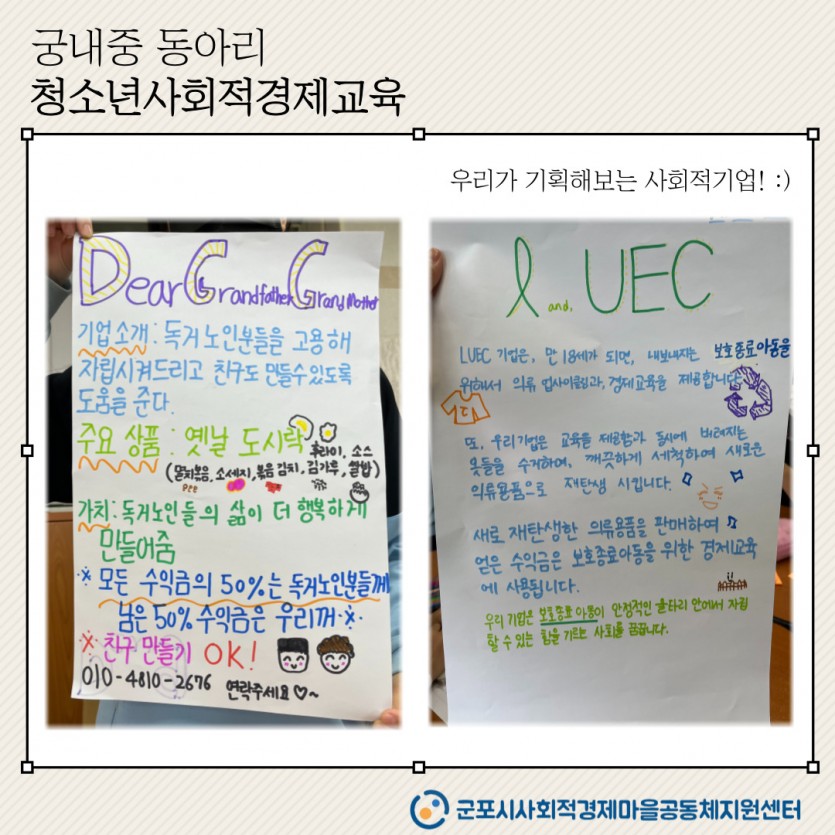 궁내중 동아리
청소년사회적경제교육
우리가 기획해보는 사회적기업! :)
Dear Grandfather Grand Mother
기업 소개 : 독거 노인분들을 고용해
자립시켜드리고 친구도 만들수있도록
도움을 준다.
주요 상품 : 옛날 도시락
후라이, 소스
(멸치볶음, 소세지, 볶음김치, 김가루, 쌀밥)
가치 : 독거노인들의 삶이 더 행복하게
만들어줌
※ 모든 수익금의 50%는 독거노인분들께
남은 50% 수익금은 우리꺼※
※ 친구 만들기 OK!
010-4810-2676 연락주세요♡~
l and, UEC
LUEC 기업은, 만 18세가 되면, 내보내지는 보호종료아동을
위해서 의류 업사이클링과, 경제교육을 제공합니다
또, 우리기업은 교육을 제공함과 동시에 버려지는
옷들을 수거하여, 깨끗하게 세척하여 새로운
의류용품으로 재탄생 시킵니다.
새로 재탄생한 의류용품을 판매하여
얻은 수익금은 보호종료아동을 위한 경제교육
에 사용됩니다.
우리 기업은 보호종료 아동이 안정적인 울타리 안에서 자립
할 수 있는 힘을 기르는 사회를 꿈꿉니다.
군포시사회적경제마을공동체지원센터